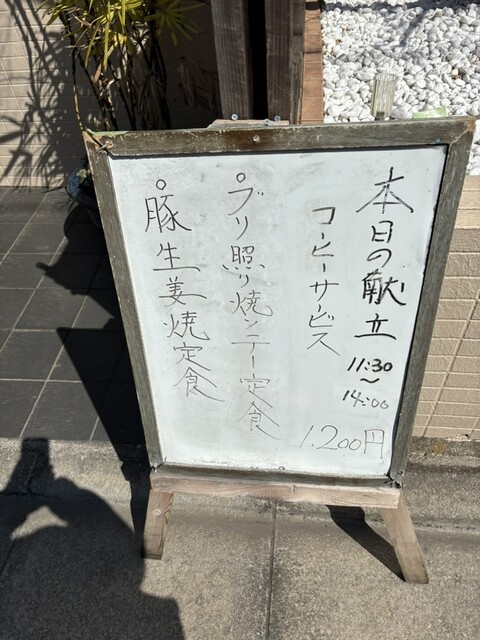 本日の献立
11:30
〜
14:00
コーヒーサービス
1.200円
°ブリ照り焼ソテー定食
°豚生姜焼定食